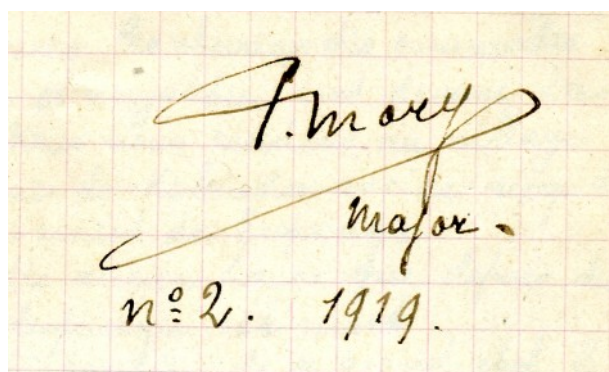 J. Mory
major.
nº 2. 1919.